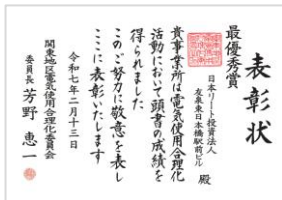 表彰状
最優秀賞
日本リート投資法人
友泉東日本橋駅前ビル 殿
貴事業所は電気使用合理化
活動において頭書の成績を
得られました
このご努力に敬意を表し
ここに表彰いたします
令和七年二月十三日
関東地区電気使用合理化委員会
委員長 芳野 恵一